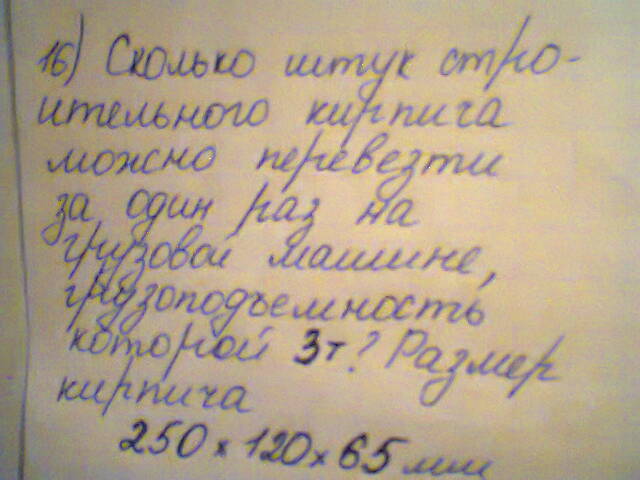 16) Сколько штук стро-
ительного кирпича
можно перевезти
за один раз на
грузовой машине,
грузоподъемность
которой 3т? Размер
кирпича
250 x 120 x 65 мм